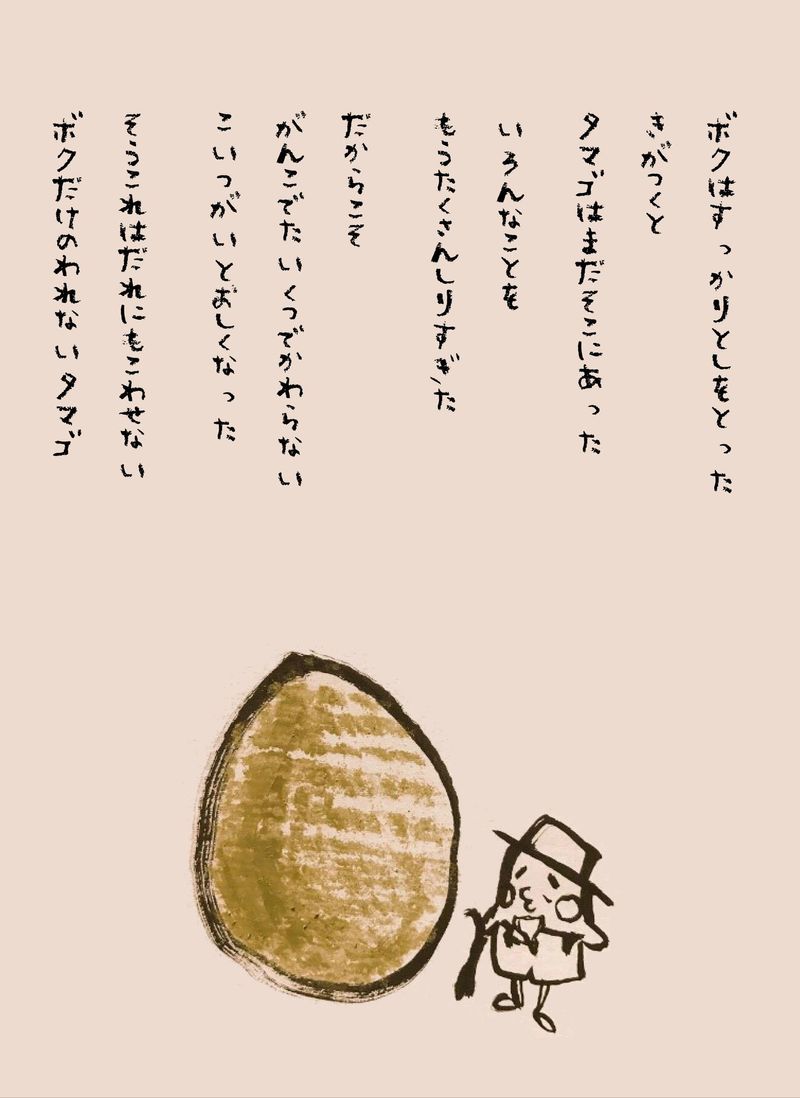 ボクはすっかりとしをとった
きがつくと
タマゴはまだそこにあった
いろんなことを
もうたくさんしりすぎた
だからこそ
がんこでたいくつでかわらない
こいつがいとおしくなった
そうこれはだれにもこわせない
ボクだけのわれないタマゴ